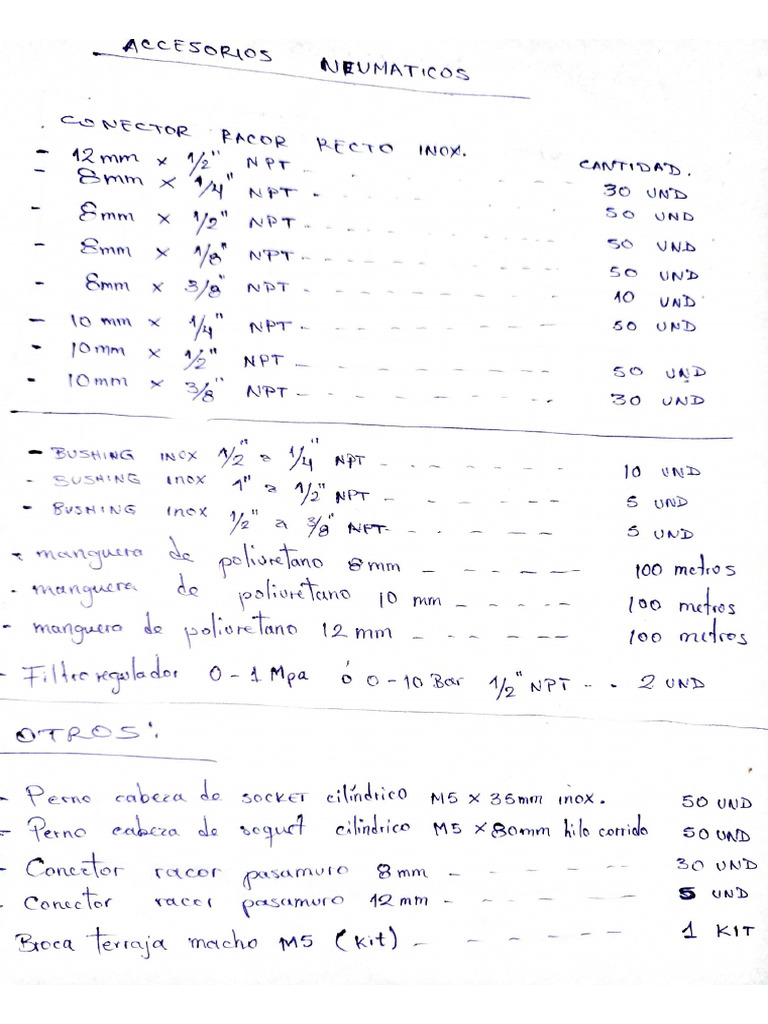 ACCESORIOS NEUMATICOS
CONECTOR RACOR RECTO INOX. CANTIDAD.
- 12mm x 1/2" NPT - - - - 30 UND
- 8mm x 1/4" NPT - - - - 50 UND
- 8mm x 1/2" NPT - - - - 50 UND
- 8mm x 1/8" NPT - - - - 50 UND
- 8mm x 3/8" NPT - - - - 10 UND
- 10 mm x 1/4" NPT - - - - 50 UND
- 10mm x 1/2" NPT - - - - 50 UND
- 10mm x 3/8" NPT - - - - 30 UND
- BUSHING INOX 1/2" a 1/4" NPT - - - - 10 UND
- BUSHING INOX 1" a 1/2" NPT - - - - 5 UND
- BUSHING INOX 1/2" a 3/8" NPT - - - - 5 UND
- manguera de poliuretano 8mm - - - - 100 metros
- manguera de poliuretano 10 mm - - - - 100 metros
- manguera de poliuretano 12 mm - - - - 100 metros
- Filtro regulador 0-1 Mpa ó 0-10 Bar 1/2" NPT - - 2 UND
OTROS:
- Perno cabeza de SOCKET cilíndrico M5 x 35mm inox. 50 UND
- Perno cabeza de soquet cilíndrico M5 x 80mm hilo corrido 50 UND
- Conector racor pasamuro 8mm - - - - 30 UND
- Conector racor pasamuro 12mm - - - - 5 UND
Broca terraja macho M5 (kit) - - - - 1 KIT